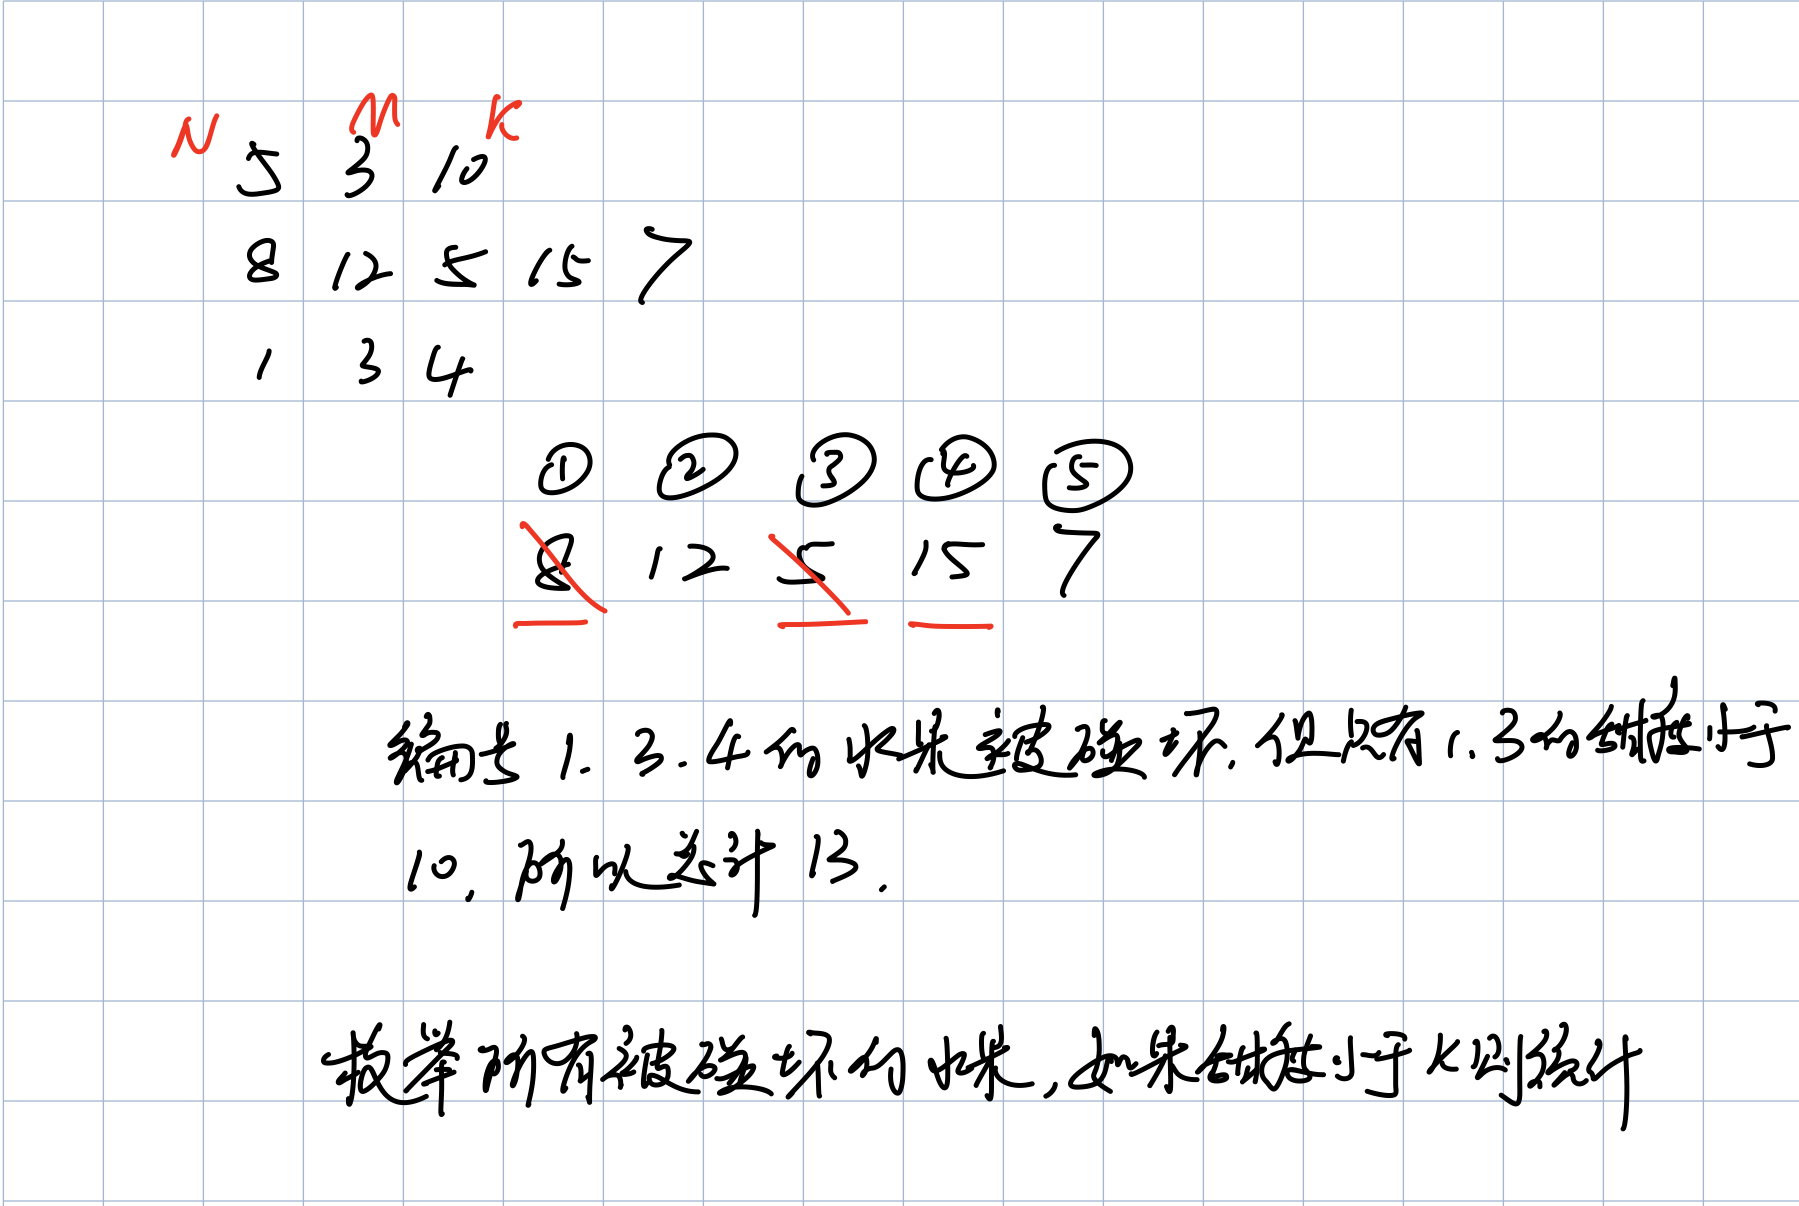 N M K
5 3 10
8 12 5 15 7
1 3 4
① ② ③ ④ ⑤
8 12 5 15 7
编号 1. 3. 4 的水果被碰坏, 但只有 1. 3 的 小于
10, 所以总计 13.
枚举所有被碰坏的水果, 如果 小于 K 则统计